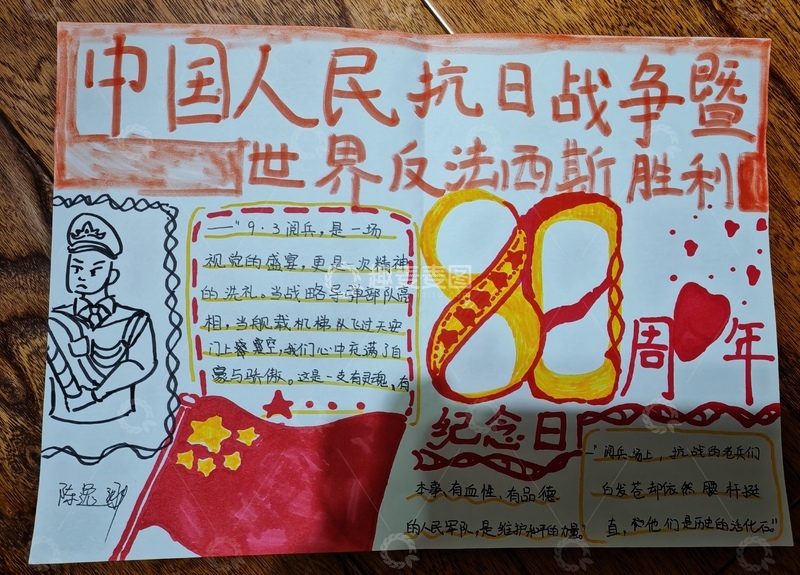 中国人民抗日战争暨
世界反法西斯胜利
一"9·3阅兵,是一场
视觉的盛宴,更是一次精神
的洗礼。当战略导弹部队亮
相,当舰载机梯队飞过天安
门上空,我们心中充满了自
豪与骄傲。这是一支有灵魂,有
80
周年
纪念日
本事、有血性、有品德
的人民军队,是维护和平的力量。
"阅兵场上,抗战的老兵们
白发苍却依然腰杆挺
直,和他们是历史的活化石。"
陈
趣麦麦图